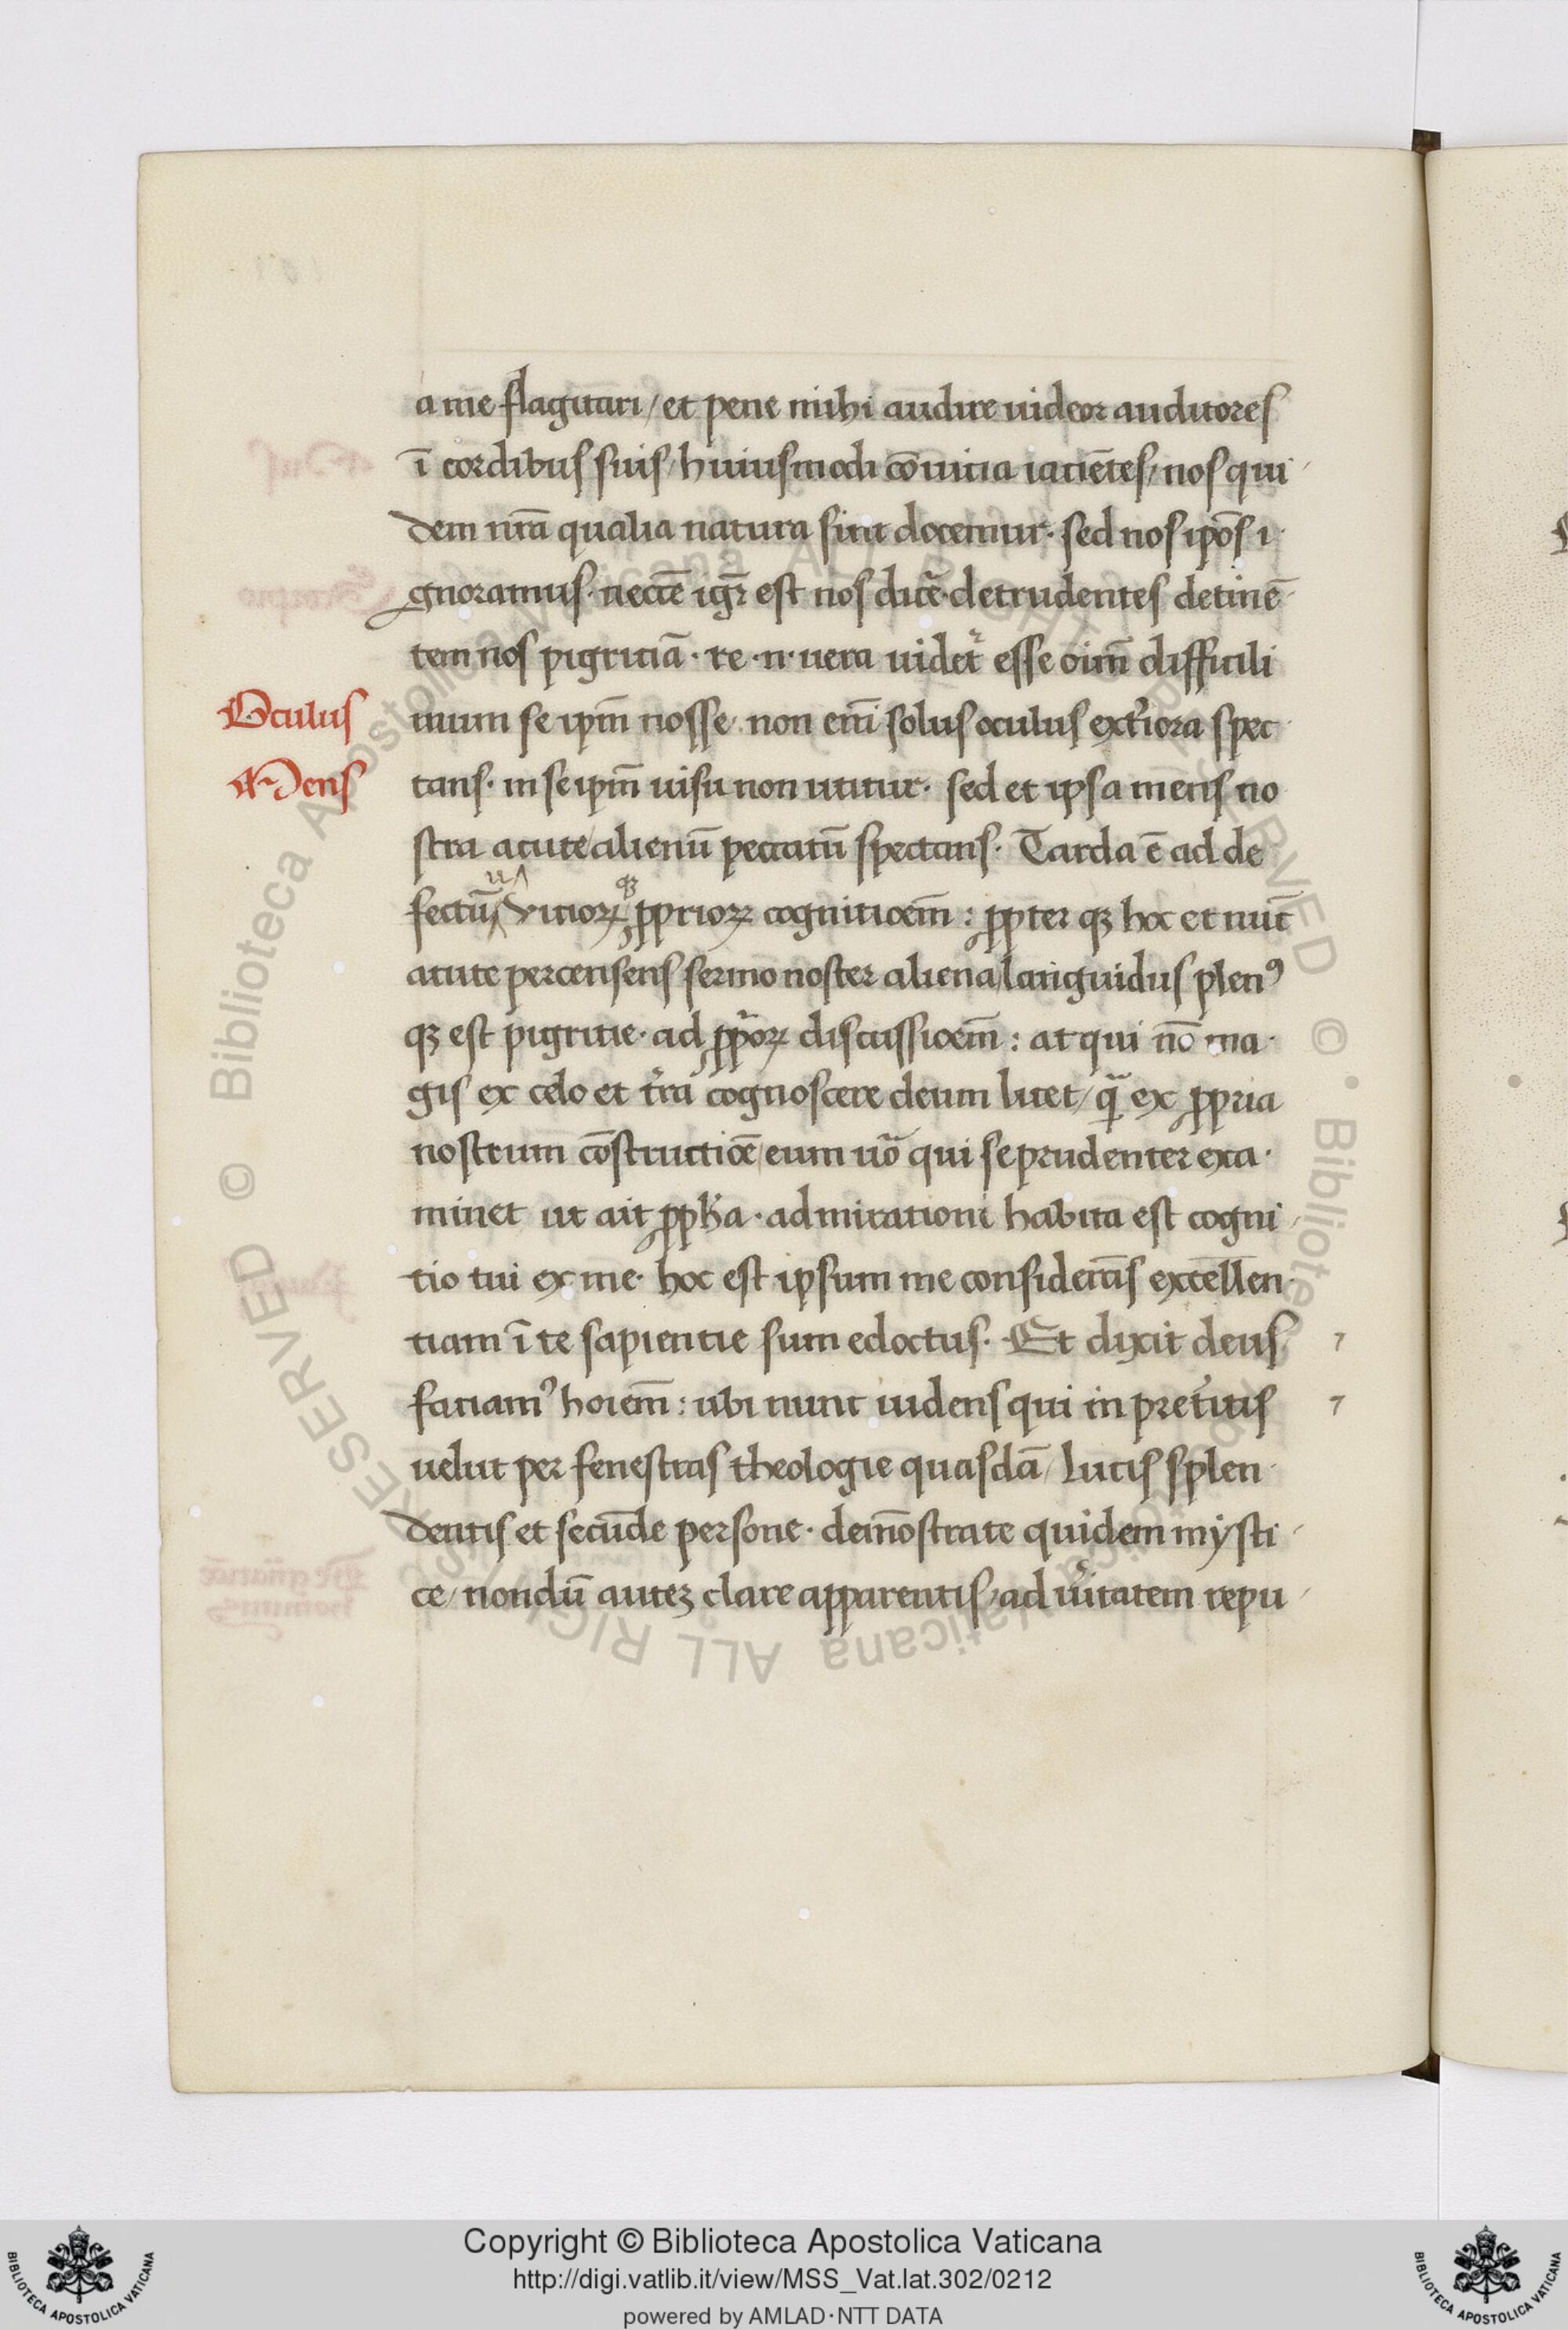 a me flagitari / et pene mihi audire uideor auditores
ī cordibus suis / huiusmodi cōuitia iaciētes / nos qui
dem nr̄a qualia natura sint docemur · sed nos ip̄os i
gnoramus · necc̄e igr̄ est nos dicē · detrudentes detinē
tem nos pigritiā · re · n · uera uidet᷑ esse oīm difficili
Oculus
mum se ip̄m nosse · non em̄ solus oculus ext̓iora spec
Mens
tans · in se ip̄m uisu non utitur · sed et ipsa mens no
stra acute alienū peccatū spectans · Tarda ē ad de
fectuū uitiorꝝqꝫ ꝓpriorꝝ cognitioem̄ : ꝓpter qꝫ hoc et nūc
acute percensens sermo noster aliena / languidus plenꝰ
qꝫ est pigritie · ad ꝓp̓orꝝ discussioem̄ : atqui nō ma
gis ex celo et t̓ra cognoscere deum licet / qᷓ ex ꝓpria
nostrum cōstructiōe / eum uō qui se prudenter exa
minet ut ait ꝓph̓a · admirationi habita est cogni
tio tui ex me · hoc est ipsum me considerās excellen
tiam ī te sapientie sum edoctus · Et dixit deus
faciamꝰ hoiem̄ : ubi nunc iudeus qui in pret̓itis
uelut per fenestras theologie quasdā / lucis splen
dentis et secūde persone · demōstrate quidem mysti
ce / nondū auteꝫ clare apparentis / ad u̓itatem repu
Copyright © Biblioteca Apostolica Vaticana
http://digi.vatlib.it/view/MSS_Vat.lat.302/0212
powered by AMLAD·NTT DATA
BIBLIOTECA APOSTOLICA VATICANA
BIBLIOTECA APOSTOLICA VATICANA